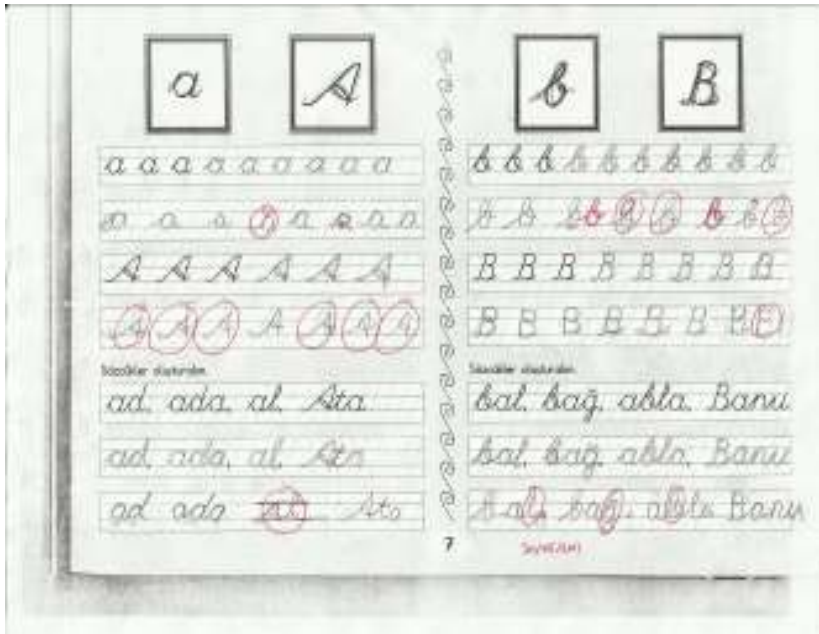 a A
a a a a a a a a a
a a a a a a a a
A A A A A A A
A A A A A A A
Sözcükler oluşturalım.
ad, ada, al, Ata
ad, ada, al, Ata
ad ada al Ata
b B
b b b b b b b b b b
b b b b b b b b b
B B B B B B B B B
B B B B B B B B B
Sözcükler oluşturalım.
bal, bağ, abla, Banu
bal, bağ, abla, Banu
bal, bağ, abla Banu
7